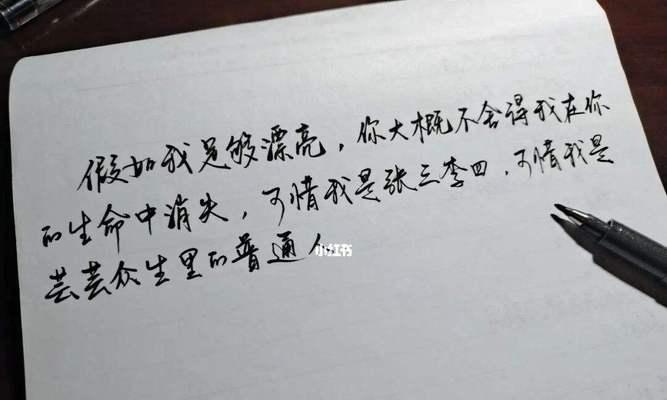 假如我足够漂亮，你大概不舍得我在你
的生命中消失，可惜我是张三李四，可惜我是
芸芸众生里的普通人
小红书